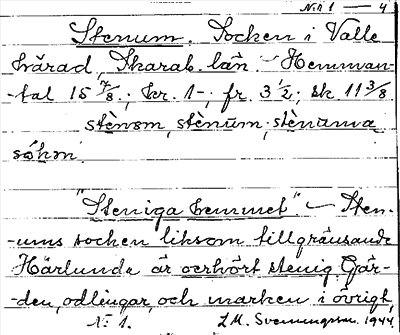 N:r 1 — 4
Stenum. Socken i Valle
härad, Skarab. län. — Hemman-
-tal 15 7/8; kr. 1-; fr. 3 1/2; sk. 11 3/8
stènom, stènum; stènuma
sökn.
"Steniga hemmet" — Sten-
-ums socken liksom tillgränsande
Härlunda är oerhört stenig. Gär-
-den, odlingar, och marken i övrigt,
N:r 1. L.M. Svenungsson. 1944